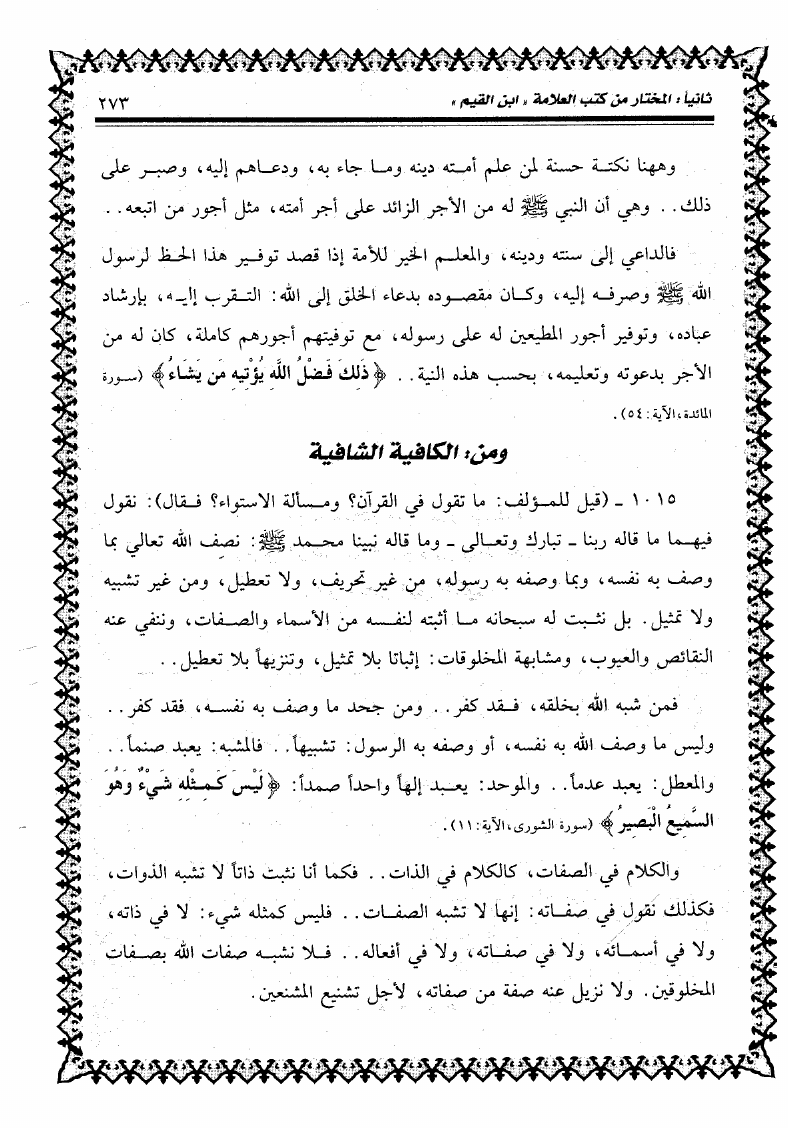 ثانياً : المختار من كتب العلامة « ابن القيم » ٢٧٣
وههنا نكتة حسنة لمن علم أمته دينه وما جاء به، ودعاهم إليه، وصبر على
ذلك . . وهي أن النبي ﷺ له من الأجر الزائد على أجر أمته، مثل أجور من اتبعه . .
فالداعي إلى سنته ودينه، والمعلم الخير للأمة إذا قصد توفير هذا الحظ لرسول
الله ﷺ وصرفه إليه، وكان مقصوده بدعاء الخلق إلى الله : التقرب إليه، بإرشاد
عباده، وتوفير أجور المطيعين له على رسوله، مع توفيتهم أجورهم كاملة، كان له من
الأجر بدعوته وتعليمه، بحسب هذه النية . . ﴿ ذَلِكَ فَضْلُ اللَّهِ يُؤْتِيهِ مَن يَشَاءُ ﴾ (سورة
المائدة، الآية : ٥٤) .
ومن : الكافية الشافية
١٠١٥ ـ (قيل للمؤلف : ما تقول في القرآن؟ ومسألة الاستواء؟ فقال) : نقول
فيهما ما قاله ربنا ـ تبارك وتعالى ـ وما قاله نبينا محمد ﷺ : نصف الله تعالي بما
وصف به نفسه، وبما وصفه به رسوله، من غير تحريف، ولا تعطيل، ومن غير تشبيه
ولا تمثيل . بل نثبت له سبحانه ما أثبته لنفسه من الأسماء والصفات، وننفي عنه
النقائص والعيوب، ومشابهة المخلوقات : إثباتا بلا تمثيل، وتنزيهاً بلا تعطيل . .
فمن شبه الله بخلقه، فقد كفر . . ومن جحد ما وصف به نفسه، فقد كفر . .
وليس ما وصف الله به نفسه، أو وصفه به الرسول : تشبيهاً . . فالمشبه : يعبد صنماً . .
والمعطل : يعبد عدماً . . والموحد : يعبد إلهاً واحداً صمداً : ﴿ لَيْسَ كَمِثْلِهِ شَيْءٌ وَهُوَ
السَّمِيعُ الْبَصِيرُ ﴾ (سورة الشورى، الآية : ١١) .
والكلام في الصفات، كالكلام في الذات . . فكما أنا نثبت ذاتاً لا تشبه الذوات،
فكذلك نقول في صفاته : إنها لا تشبه الصفات . . فليس كمثله شيء : لا في ذاته،
ولا في أسمائه، ولا في صفاته، ولا في أفعاله . . فلا نشبه صفات الله بصفات
المخلوقين . ولا نزيل عنه صفة من صفاته، لأجل تشنيع المشنعين .